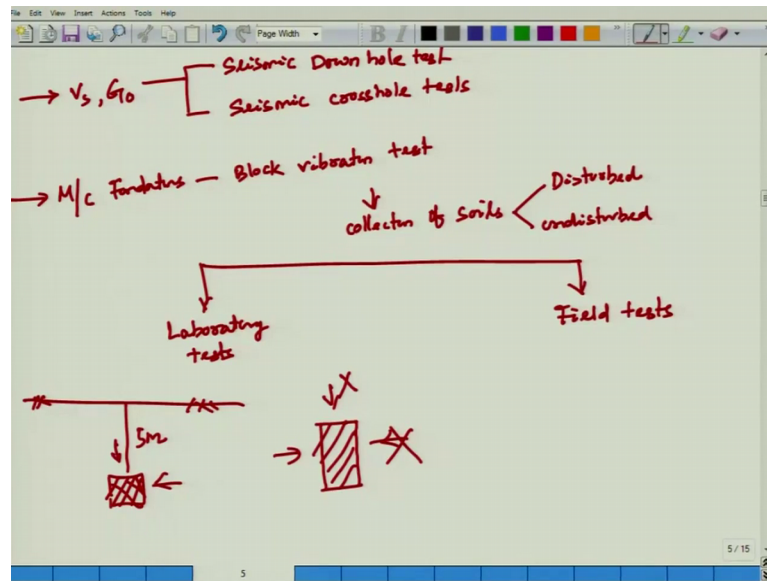 File Edit View Insert Actions Tools Help
Page Width
B I
Seismic Down hole test
→ Vs, G0
Seismic crosshole tests
→ M/c Fondatns — Block vibratn test
↓
collectn of soils
Disturbed
undisturbed
Laboratory
tests
Field tests
↓ X
↓ 5m
5 / 15
5